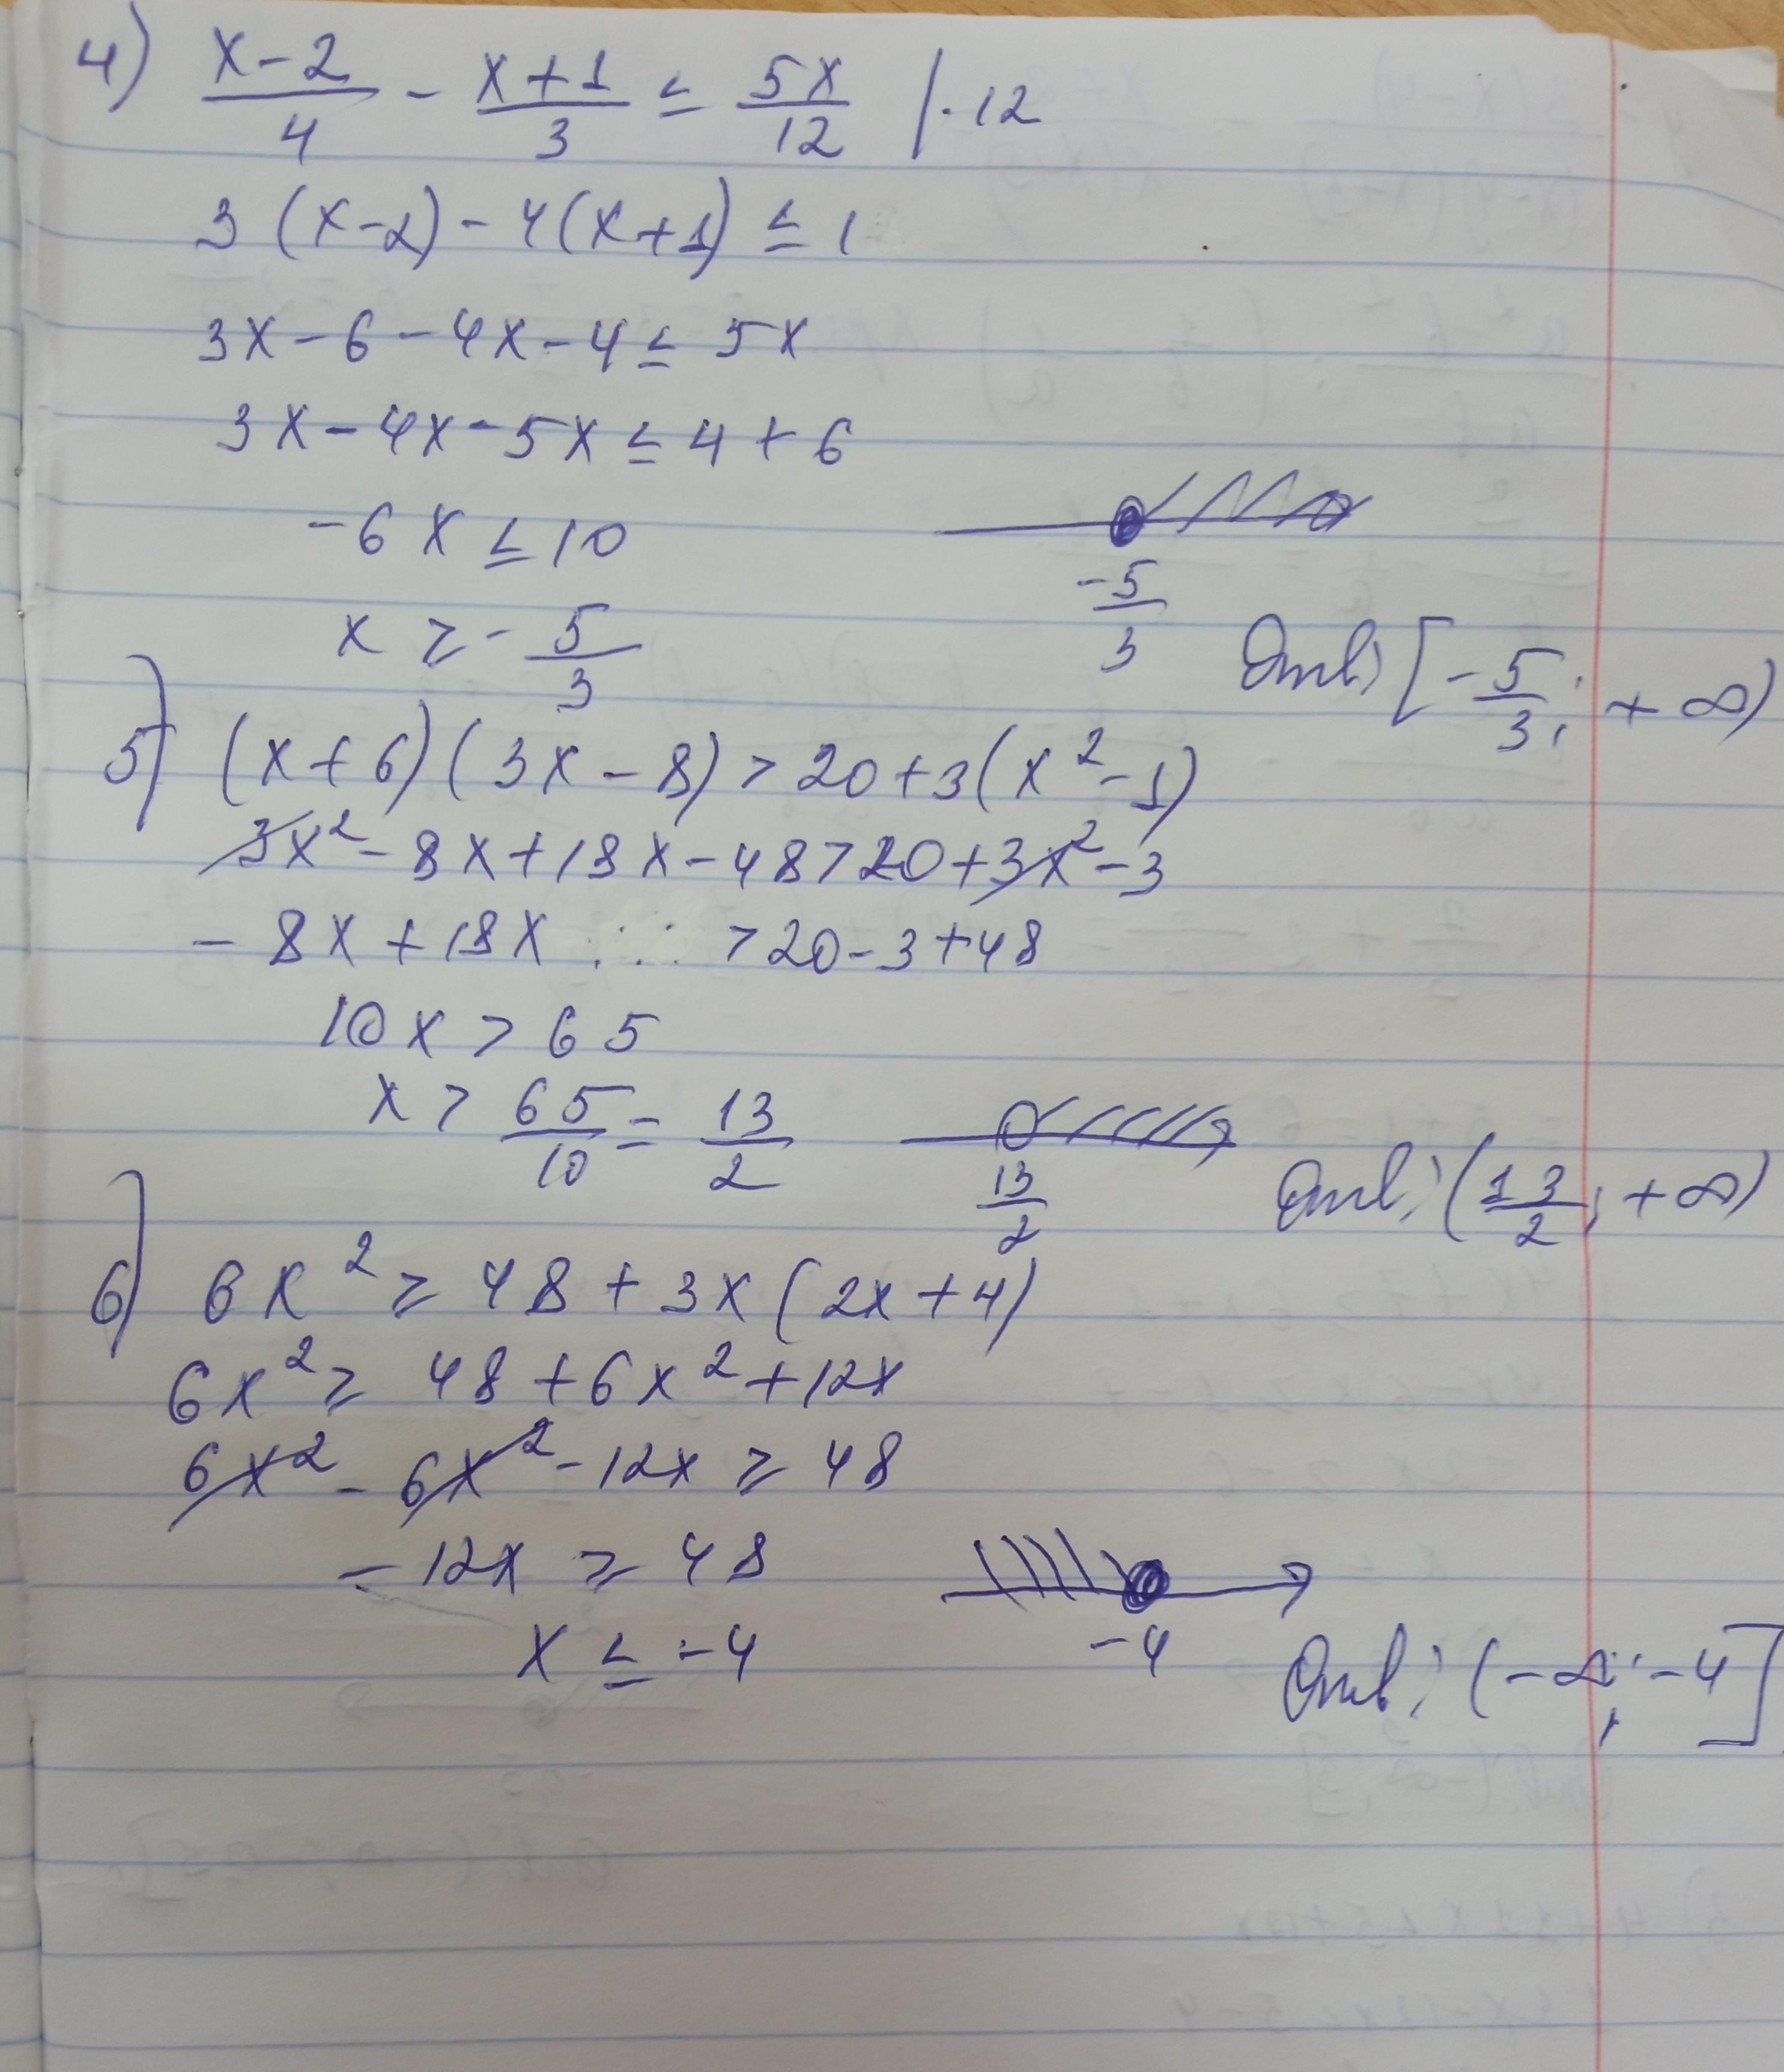 4) (x-2)/4 - (x+1)/3 ≤ 5x/12 |·12
3(x-2)-4(x+1) ≤ 1
3x-6-4x-4 ≤ 5x
3x-4x-5x ≤ 4+6
-6x ≤ 10
x ≥ -5/3
-5/3
Отв: [-5/3; +∞)
5) (x+6)(3x-8) > 20+3(x²-1)
3x²-8x+18x-48 > 20+3x²-3
-8x+18x > 20-3+48
10x > 65
x > 65/10 = 13/2
13/2
Отв: (13/2; +∞)
6) 6x² ≥ 48+3x(2x+4)
6x² ≥ 48+6x²+12x
6x²-6x²-12x ≥ 48
-12x ≥ 48
x ≤ -4
-4
Отв: (-∞; -4]